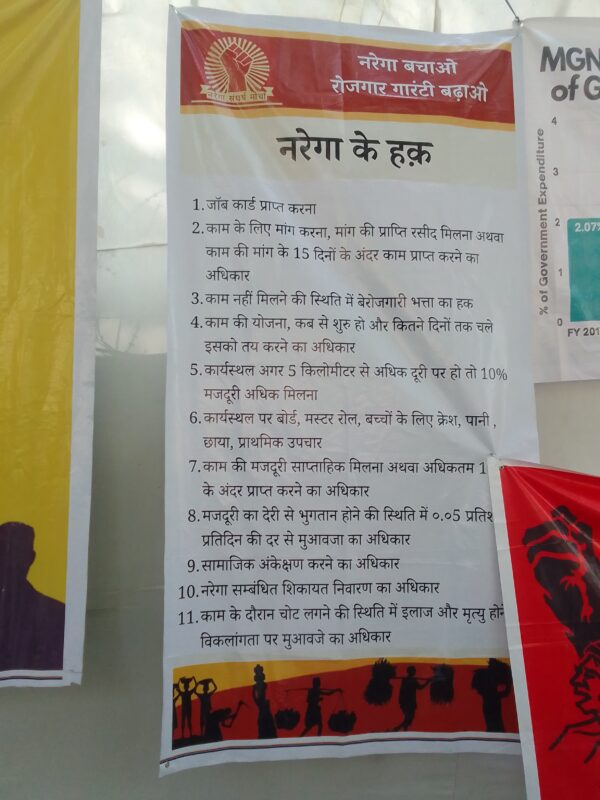 नरेगा बचाओ
रोजगार गारंटी बढ़ाओ
नरेगा संघर्ष मोर्चा
नरेगा के हक़
1. जॉब कार्ड प्राप्त करना
2. काम के लिए मांग करना, मांग की प्राप्ति रसीद मिलना अथवा
काम की मांग के 15 दिनों के अंदर काम प्राप्त करने का
अधिकार
3. काम नहीं मिलने की स्थिति में बेरोजगारी भत्ता का हक
4. काम की योजना, कब से शुरु हो और कितने दिनों तक चले
इसको तय करने का अधिकार
5. कार्यस्थल अगर 5 किलोमीटर से अधिक दूरी पर हो तो 10%
मजदूरी अधिक मिलना
6. कार्यस्थल पर बोर्ड, मस्टर रोल, बच्चों के लिए क्रेश, पानी ,
छाया, प्राथमिक उपचार
7. काम की मजदूरी साप्ताहिक मिलना अथवा अधिकतम
के अंदर प्राप्त करने का अधिकार
8. मजदूरी का देरी से भुगतान होने की स्थिति में ०.०5
प्रतिदिन की दर से मुआवजा का अधिकार
9. सामाजिक अंकेक्षण करने का अधिकार
10. नरेगा सम्बंधित शिकायत निवारण का अधिकार
11. काम के दौरान चोट लगने की स्थिति में इलाज और मृत्यु
विकलांगता पर मुआवजे का अधिकार
MGN
of G
% of Government Expenditure
4
3
2
1
0
2.07%
FY 201